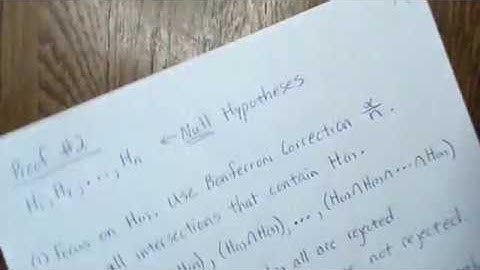 Proof #2
H₁, H₂, ..., Hₙ ← Null Hypotheses
(1) Focus on H₍₁₎. Use Bonferroni Correction α/n.
all intersections that contain H₍₁₎.
, (H₍₁₎∩H₍₃₎), ..., (H₍₁₎∩H₍₂₎∩⋯∩H₍ₙ₎)
all are rejected.
not rejected.